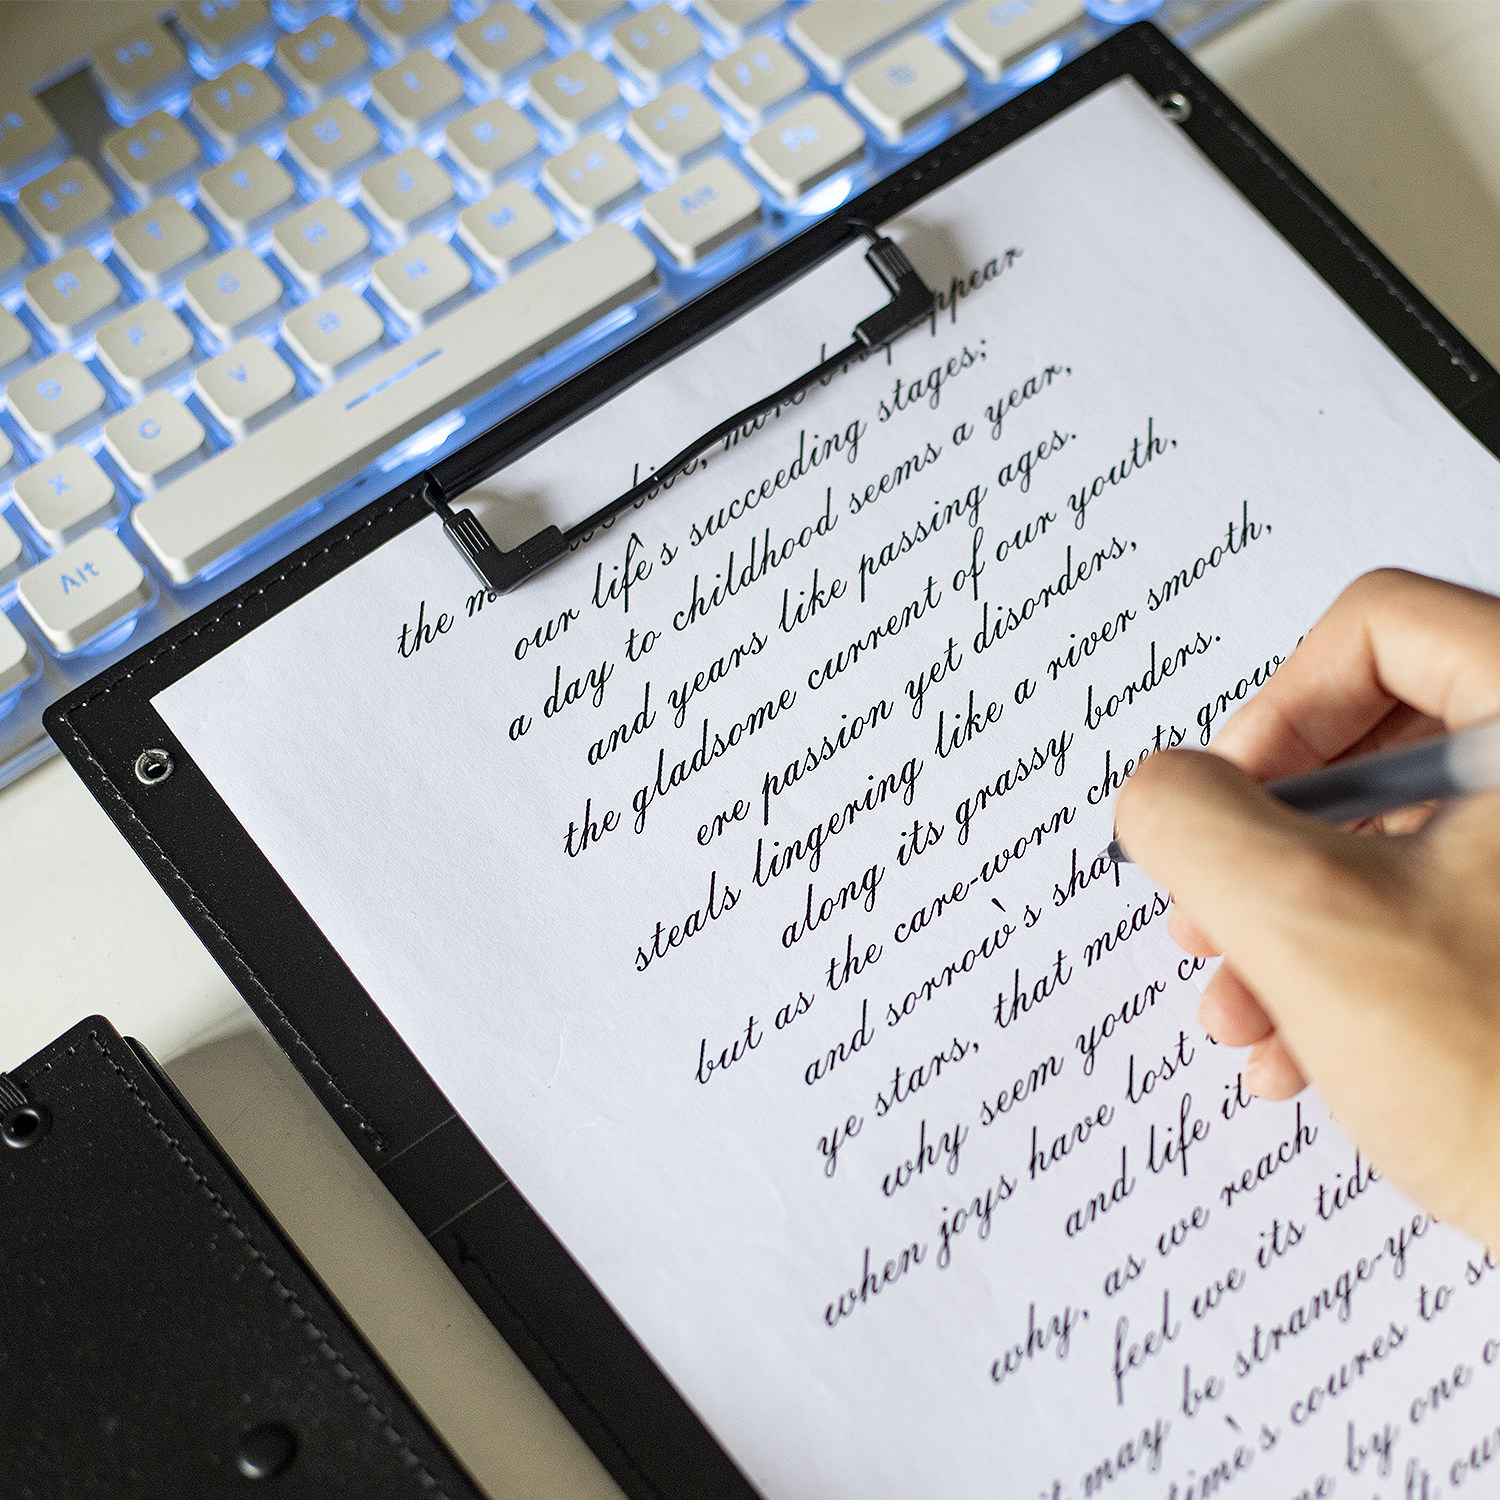 D F G H J
X C V B N M
Alt Alt
the live, more
our life's succeeding stages;
a day to childhood seems a year,
and years like passing ages.
the gladsome current of our youth,
ere passion yet disorders,
steals lingering like a river smooth,
along its grassy borders.
but as the care-worn cheets grow
and sorrow's
ye stars, that
why seem your
when joys have lost
and life
why, as we reach
feel we its
may be
time's coures to
by one